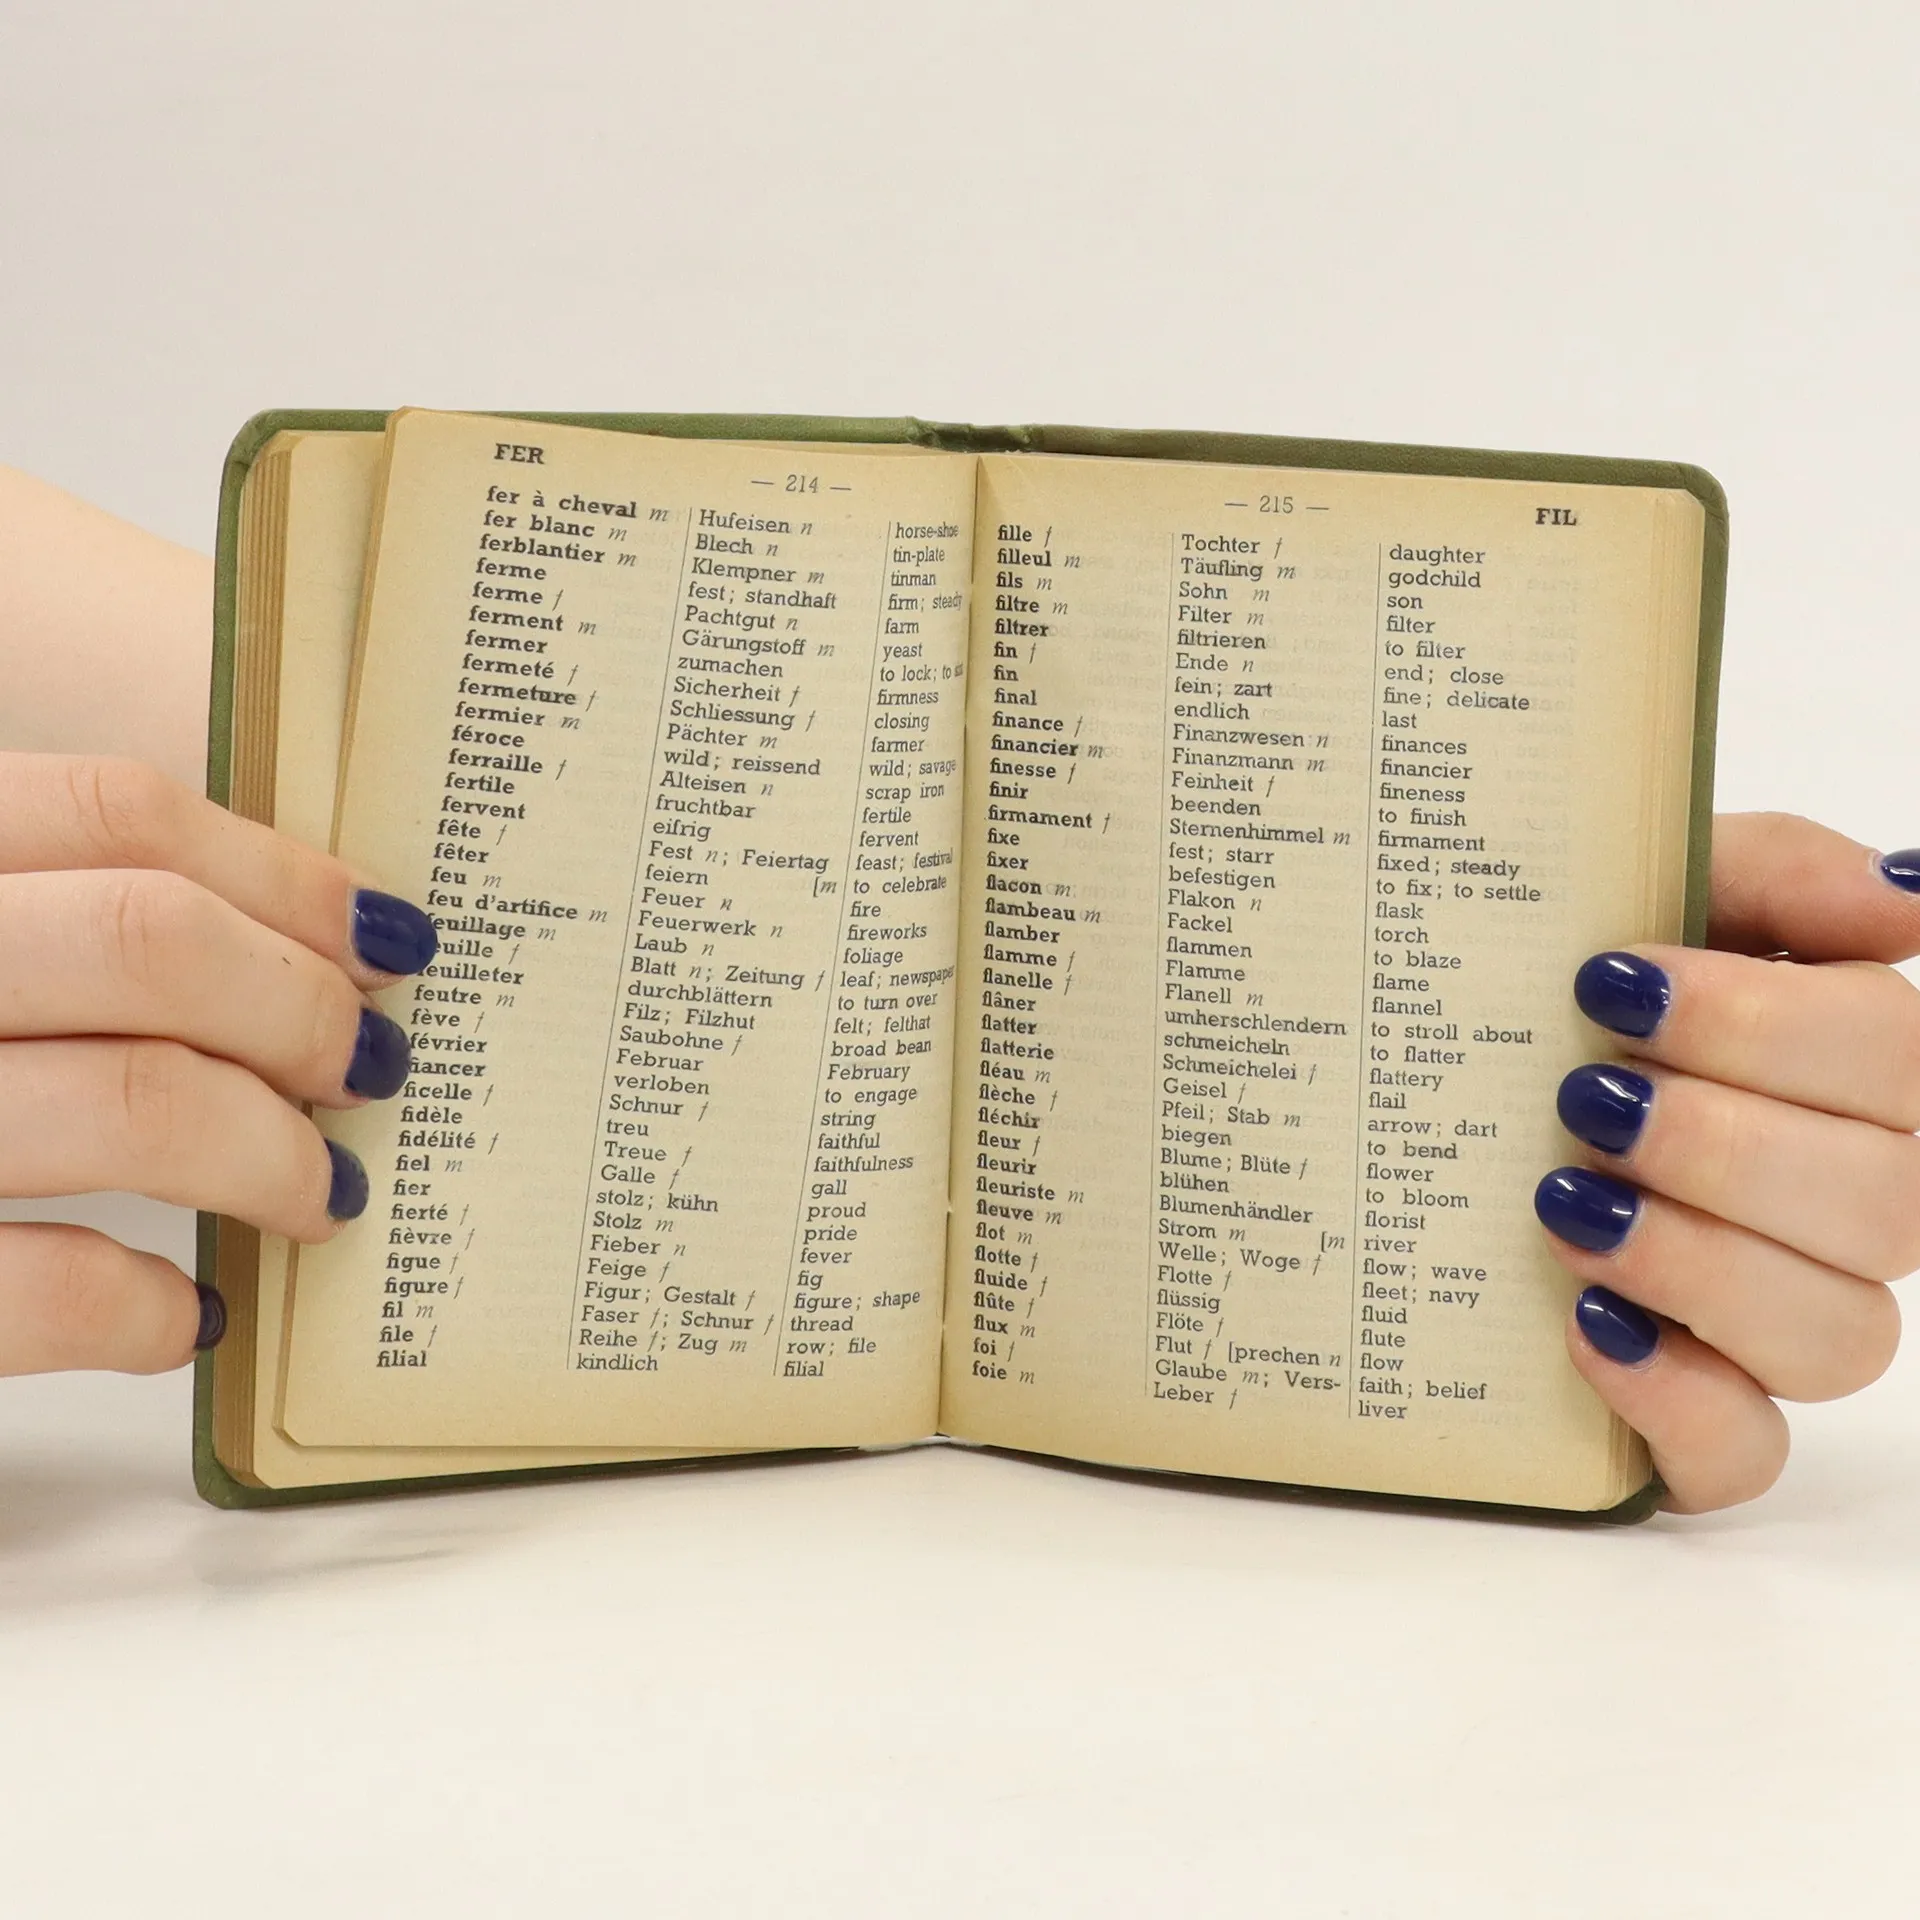 FER
— 214 —
fer à cheval m Hufeisen n horse-shoe
fer blanc m Blech n tin-plate
ferblantier m Klempner m tinman
ferme fest; standhaft firm; steady
ferme f Pachtgut n farm
ferment m Gärungstoff m yeast
fermer zumachen to lock; to
fermeté f Sicherheit f firmness
fermeture f Schliessung f closing
fermier m Pächter m farmer
féroce wild; reissend wild; savage
ferraille f Alteisen n scrap iron
fertile fruchtbar fertile
fervent eifrig fervent
fête f Fest n; Feiertag feast; festival
fêter feiern [m to celebrate
feu m Feuer n fire
feu d'artifice m Feuerwerk n fireworks
feuillage m Laub n foliage
feuille f Blatt n; Zeitung f leaf; newspaper
feuilleter durchblättern to turn over
feutre m Filz; Filzhut felt; felthat
fève f Saubohne f broad bean
février Februar February
fiancer verloben to engage
ficelle f Schnur f string
fidèle treu faithful
fidélité f Treue f faithfulness
fiel m Galle f gall
fier stolz; kühn proud
fierté f Stolz m pride
fièvre f Fieber n fever
figue f Feige f fig
figure f Figur; Gestalt f figure; shape
fil m Faser f; Schnur f thread
file f Reihe f; Zug m row; file
filial kindlich filial
— 215 —
FIL
fille f Tochter f daughter
filleul m Täufling m godchild
fils m Sohn m son
filtre m Filter m filter
filtrer filtrieren to filter
fin f Ende n end; close
fin fein; zart fine; delicate
final endlich last
finance f Finanzwesen n finances
financier m Finanzmann m financier
finesse f Feinheit f fineness
finir beenden to finish
firmament f Sternenhimmel m firmament
fixe fest; starr fixed; steady
fixer befestigen to fix; to settle
flacon m Flakon n flask
flambeau m Fackel torch
flamber flammen to blaze
flamme f Flamme flame
flanelle f Flanell m flannel
flâner umherschlendern to stroll about
flatter schmeicheln to flatter
flatterie Schmeichelei f flattery
fléau m Geisel f flail
flèche f Pfeil; Stab m arrow; dart
fléchir biegen to bend
fleur f Blume; Blüte f flower
fleurir blühen to bloom
fleuriste m Blumenhändler florist
fleuve m Strom m [m river
flot m Welle; Woge f flow; wave
flotte f Flotte f fleet; navy
fluide f flüssig fluid
flûte f Flöte f flute
flux m Flut f [prechen n flow
foi f Glaube m; Vers- faith; belief
foie m Leber f liver